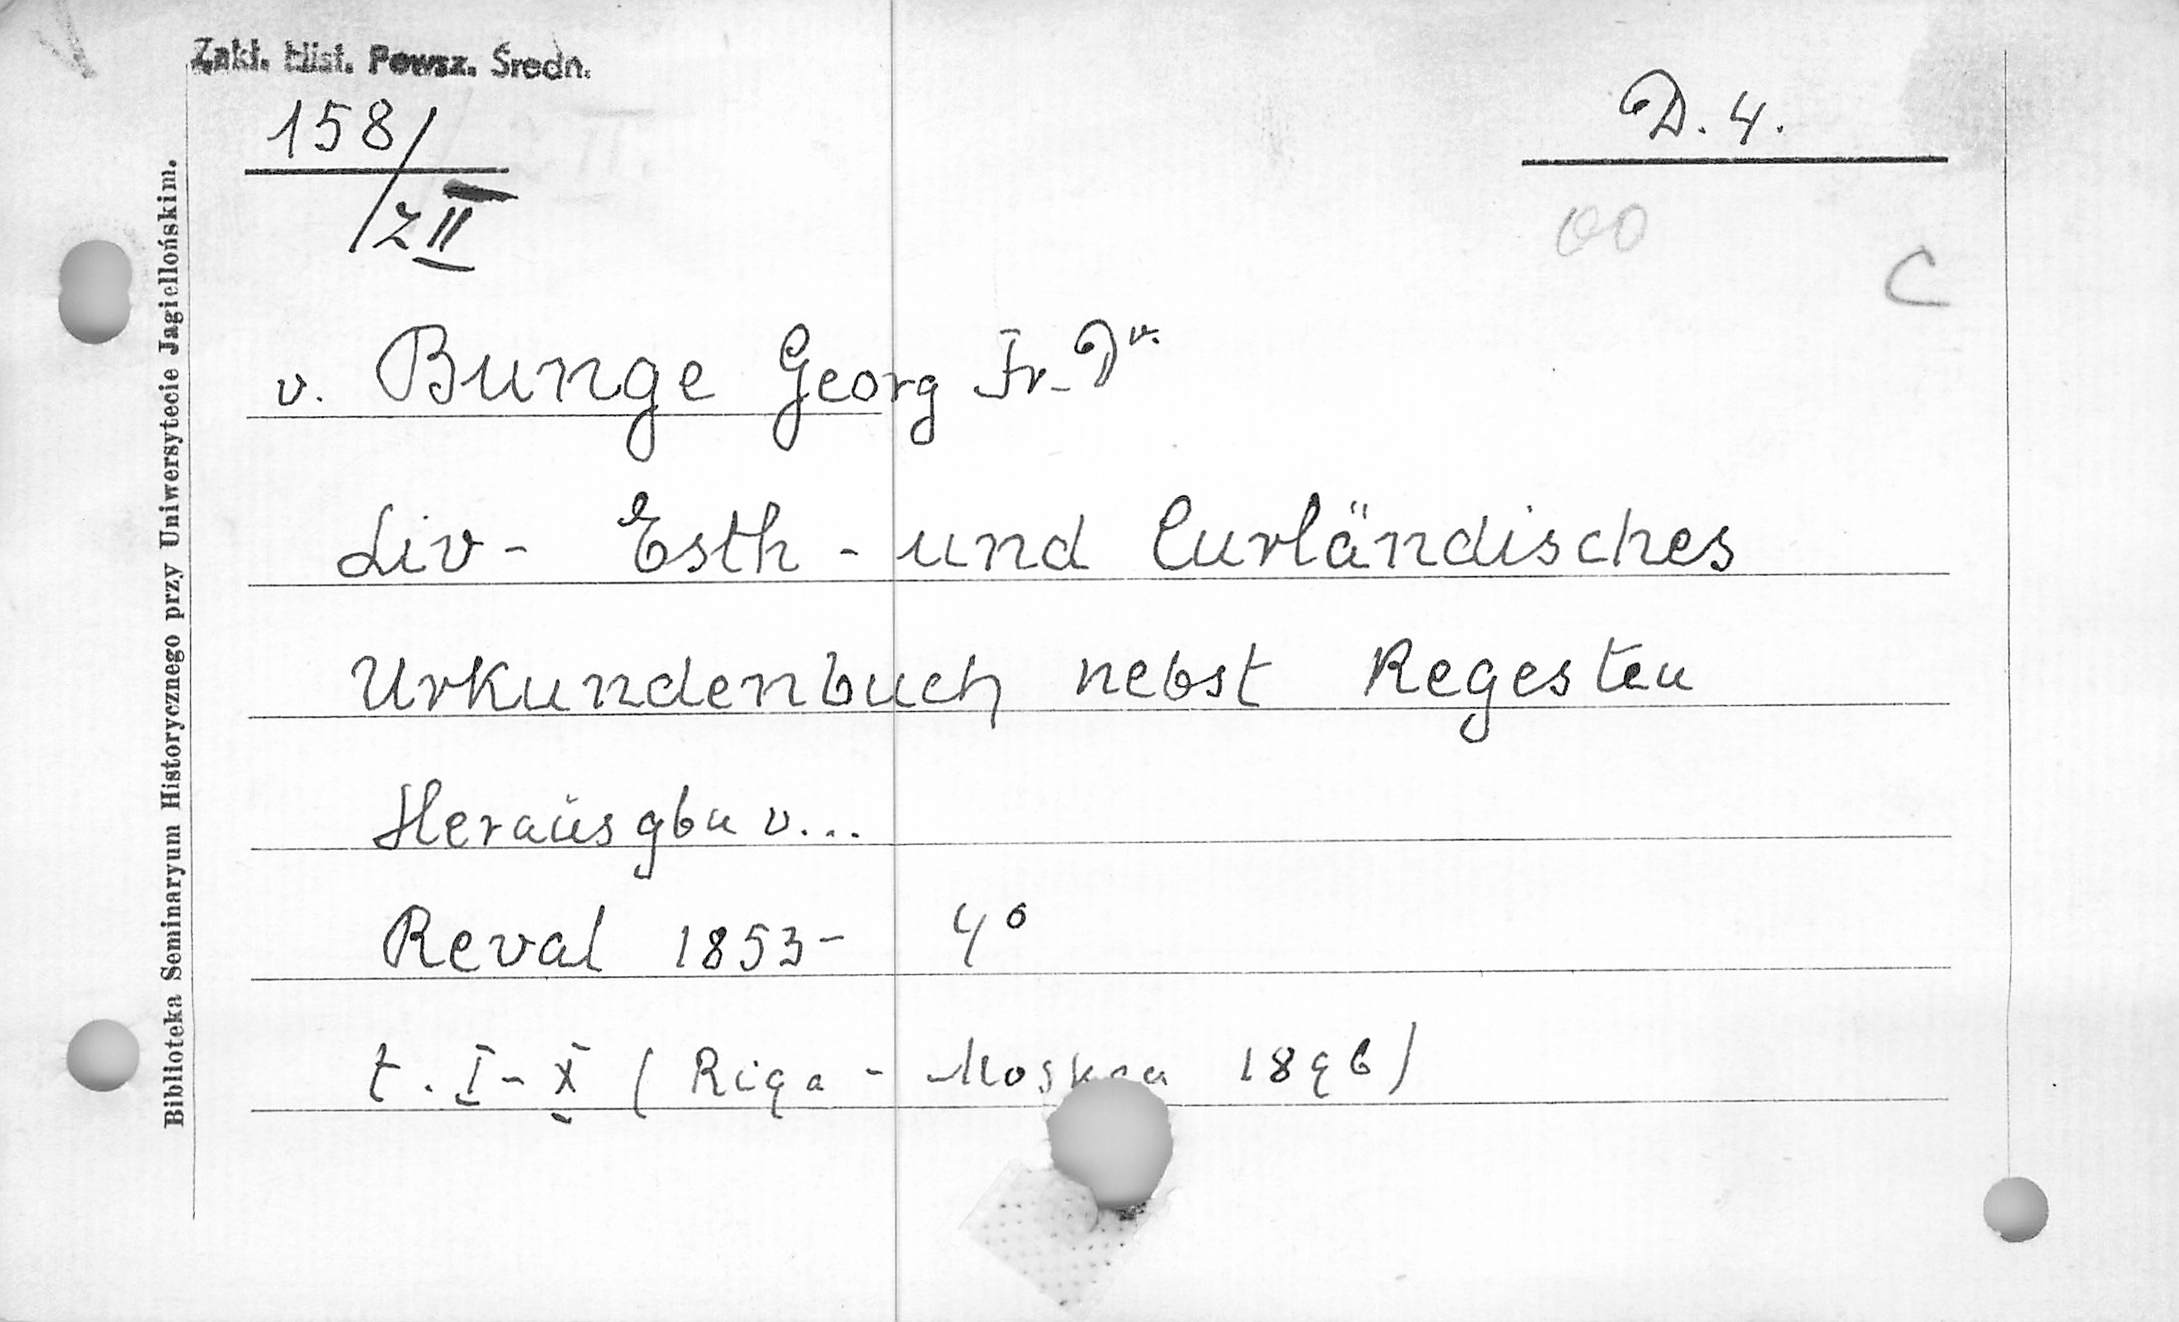 Zakł. Hist. Powsz. Średn.
158/
Z II
D. 4.
00
C
Biblioteka Seminaryum Historycznego przy Uniwersytecie Jagiellońskim.
v. Bunge Georg Fr. Dr.
Liv- Esth - und Curländisches
Urkundenbuch nebst Regesten
Herausgbn v...
Reval 1853- 4°
t. I-X (Riga - Moskva 1896)